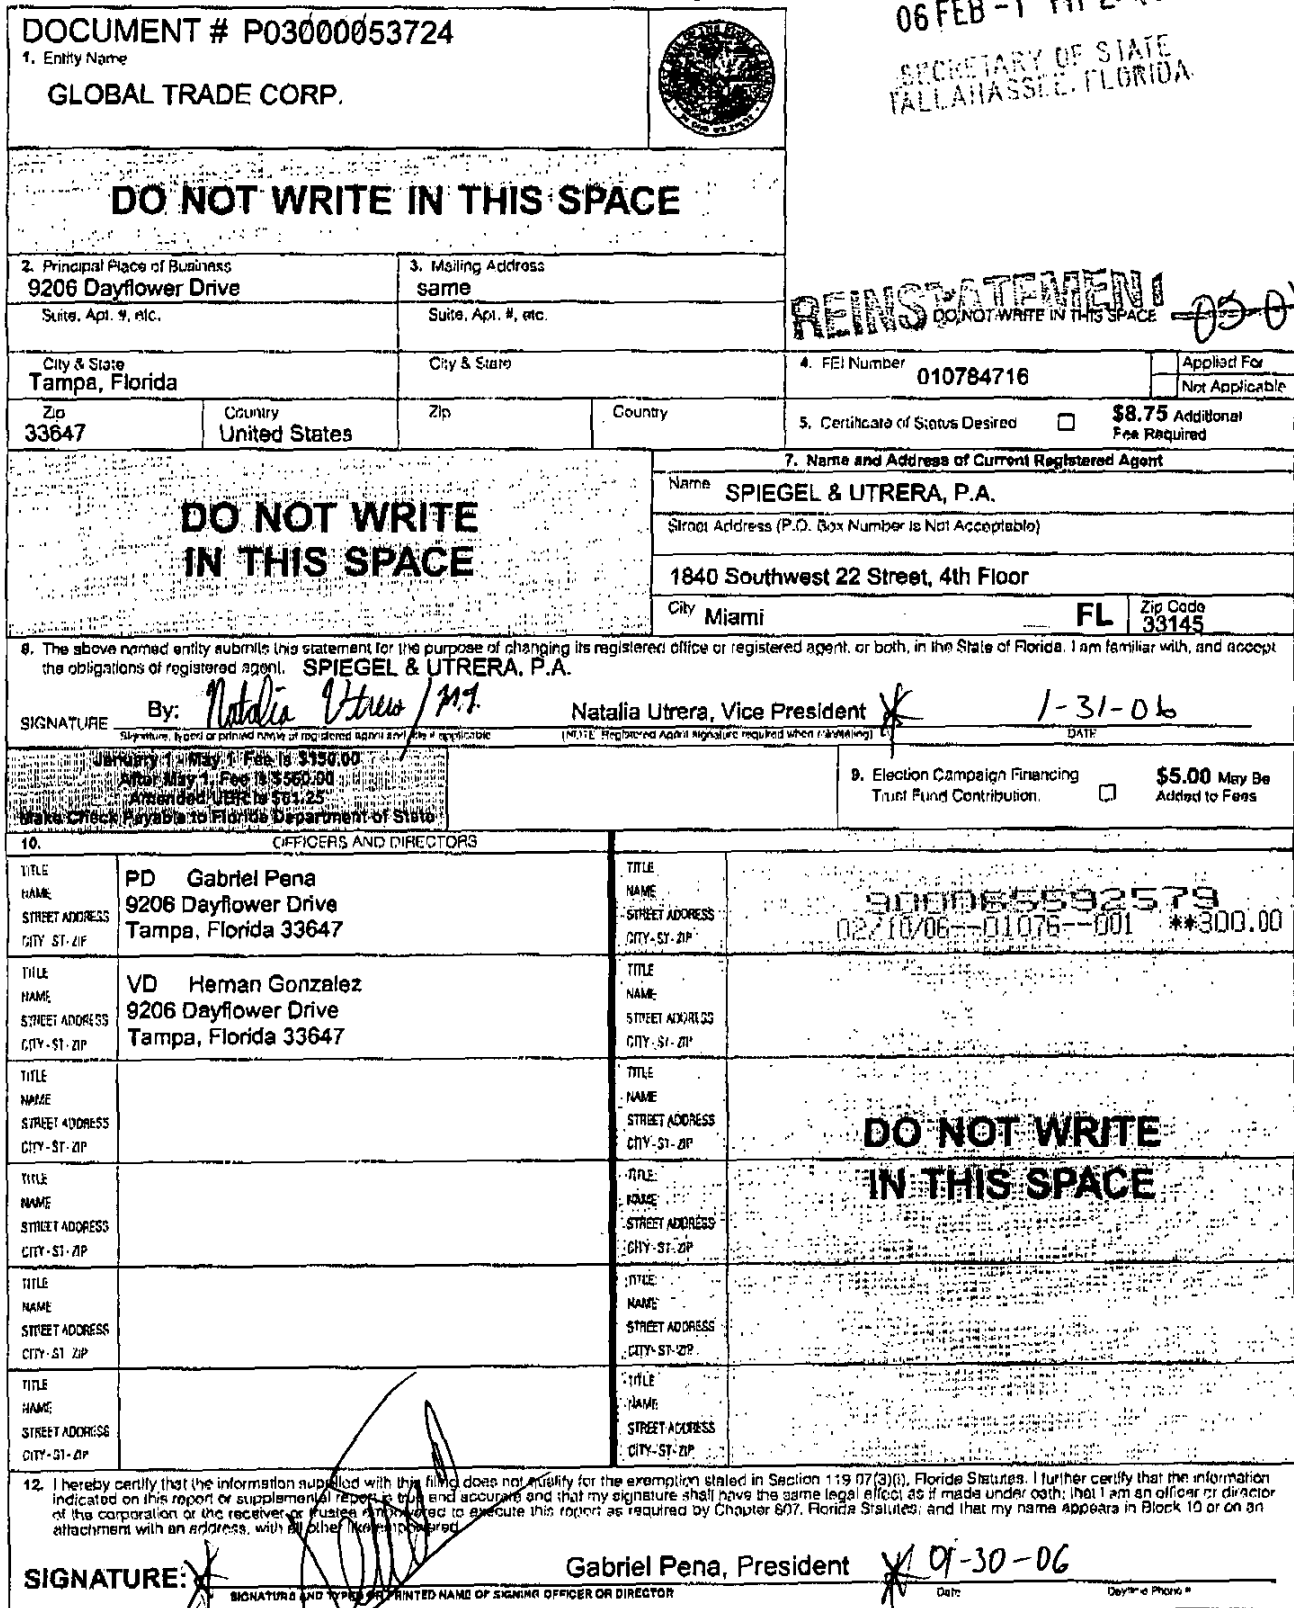 DOCUMENT # P03000053724
1. Entity Name
GLOBAL TRADE CORP.
06 FEB -1
SECRETARY OF STATE
TALLAHASSEE, FLORIDA
DO NOT WRITE IN THIS SPACE
2. Principal Place of Business
9206 Dayflower Drive
3. Mailing Address
same
Suite, Apt. #, etc.
Suite, Apt. #, etc.
REINSTATEMENT
DO NOT WRITE IN THIS SPACE
City & State
Tampa, Florida
City & State
4. FEI Number
010784716
Applied For
Not Applicable
Zip
33647
Country
United States
Zip
Country
5. Certificate of Status Desired
$8.75 Additional
Fee Required
DO NOT WRITE
IN THIS SPACE
7. Name and Address of Current Registered Agent
Name SPIEGEL & UTRERA, P.A.
Street Address (P.O. Box Number is Not Acceptable)
1840 Southwest 22 Street, 4th Floor
City Miami FL Zip Code
33145
8. The above named entity submits this statement for the purpose of changing its registered office or registered agent, or both, in the State of Florida. I am familiar with, and accept
the obligations of registered agent. SPIEGEL & UTRERA, P.A.
SIGNATURE By: Natalia Utrera Natalia Utrera, Vice President 1-31-06
Signature, typed or printed name of registered agent and title if applicable (NOTE: Registered Agent signature required when reinstating) DATE
January 1 - May 1 Fee is $150.00
After May 1, Fee is $550.00
Amended UBR is $61.25
Make Check Payable to Florida Department of State
9. Election Campaign Financing
Trust Fund Contribution.
$5.00 May Be
Added to Fees
10. OFFICERS AND DIRECTORS
TITLE
NAME
STREET ADDRESS
CITY-ST-ZIP
PD Gabriel Pena
9206 Dayflower Drive
Tampa, Florida 33647
TITLE
NAME
STREET ADDRESS
CITY-ST-ZIP
900065592579
02/10/06--01076--001 **300.00
TITLE
NAME
STREET ADDRESS
CITY-ST-ZIP
VD Hernan Gonzalez
9206 Dayflower Drive
Tampa, Florida 33647
TITLE
NAME
STREET ADDRESS
CITY-ST-ZIP
TITLE
NAME
STREET ADDRESS
CITY-ST-ZIP
TITLE
NAME
STREET ADDRESS
CITY-ST-ZIP
DO NOT WRITE
IN THIS SPACE
TITLE
NAME
STREET ADDRESS
CITY-ST-ZIP
TITLE
NAME
STREET ADDRESS
CITY-ST-ZIP
TITLE
NAME
STREET ADDRESS
CITY-ST-ZIP
TITLE
NAME
STREET ADDRESS
CITY-ST-ZIP
TITLE
NAME
STREET ADDRESS
CITY-ST-ZIP
TITLE
NAME
STREET ADDRESS
CITY-ST-ZIP
12. I hereby certify that the information supplied with this filing does not qualify for the exemption stated in Section 119.07(3)(i), Florida Statutes. I further certify that the information
indicated on this report or supplemental report is true and accurate and that my signature shall have the same legal effect as if made under oath; that I am an officer or director
of the corporation or the receiver or trustee empowered to execute this report as required by Chapter 607, Florida Statutes; and that my name appears in Block 10 or on an
attachment with an address, with all other like empowered.
SIGNATURE: Gabriel Pena, President 01-30-06
SIGNATURE AND TYPED OR PRINTED NAME OF SIGNING OFFICER OR DIRECTOR Date Daytime Phone #